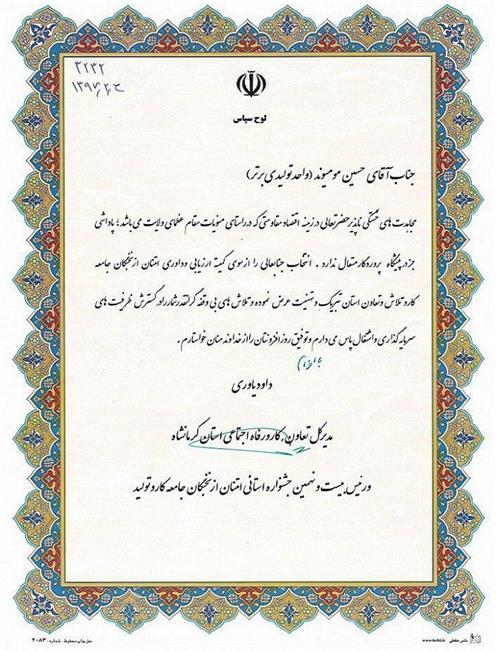 ۳۲۳۲
لوح سپاس
جناب آقای حسین مومیوند (واحد تولیدی برتر)
مجاهدت های خستگی ناپذیر حضرتعالی در زمینه اقتصاد مقاومتی که در راستای منویات مقام عظمای ولایت می باشد؛ پاداشی
جز در پیشگاه پروردگار متعال ندارد. انتخاب جنابعالی را از سوی کمیته ارزیابی و داوری امتنان از نخبگان جامعه
کار و تلاش و تعاون استان تبریک و تهنیت عرض نموده و تلاش های بی وقفه گرانقدرتان را در گسترش ظرفیت های
سرمایه گذاری و اشتغال پاس می دارم و توفیق روزافزونتان را از خداوند منان خواستارم.
داود یاوری
مدیرکل تعاون، کار و رفاه اجتماعی استان کرمانشاه
و رئیس بیست و نهمین جشنواره استانی امتنان از نخبگان جامعه کار و تولید
حق چاپ محفوظ. شماره: ۲۰۸۳